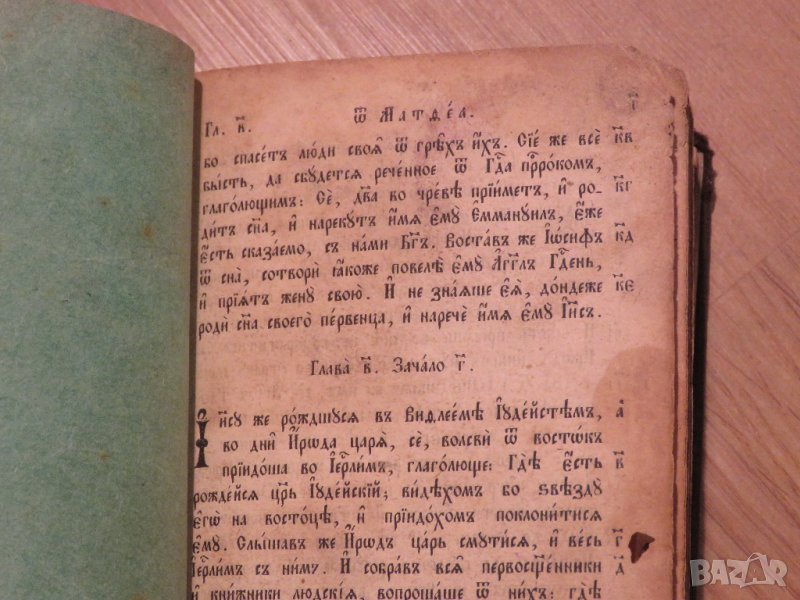 Гл. в҃. Ѿ Матѳеа.
бо спасетъ люди своѧ̑ ѿ грѣхъ и҆́хъ. Сїе́ же всѐ к҃в
бысть, да сбу́детсѧ рече́нное ѿ Гд҇а прⷪ҇ро́комъ,
глаго́лющимъ: Сѐ, дв҃а во чре́вѣ прїи́метъ, и҆ ро- к҃г
ди́тъ сн҃а, и҆ нареку́тъ и҆́мѧ є҆му̀ Є҆ммануи́лъ, є҆́же
є҆́сть сказа́емо, съ на́ми Бг҃ъ. Воста́въ же І҆ѡ́сифъ к҃д
ѿ сна̀, сотворѝ ꙗ҆́коже повелѣ̀ є҆му̀ А҆́гг҃лъ Гд҇ень,
и҆ прїѧ́тъ жену̀ свою̀. И҆ не зна́ѧше є҆ѧ̀, до́ндеже к҃є
родѝ сн҃а своего̀ пе́рвенца, и҆ наречѐ и҆́мѧ є҆му̀ І҆и҃съ.
Глава̀ в҃. Зача́ло г҃.
І҆и҃су же ро́ждшусѧ въ Виѳлее́мѣ І҆уде́йстѣмъ, а҃
во днѝ И҆́рѡда царѧ̀, сѐ, волсвѝ ѿ восто̑къ
прїидо́ша во І҆ерⷭ҇ли́мъ, глаго́люще: Гдѣ̀ є҆́сть в҃
рожде́йсѧ цр҃ь І҆уде́йскїй; ви́дѣхомъ бо ѕвѣзду̀
є҆гѡ̀ на восто́цѣ, и҆ прїидо́хомъ поклони́тисѧ
є҆му̀. Слы́шавъ же И҆́рѡдъ ца́рь смути́сѧ, и҆ ве́сь г҃
І҆ерⷭ҇ли́мъ съ ни́му. И҆ собра́въ всѧ̑ первосщ҃е́нники д҃
и҆ кни́жники людскі́ѧ, вопроша́ше ѿ ни́хъ: гдѣ̀
BAZAR